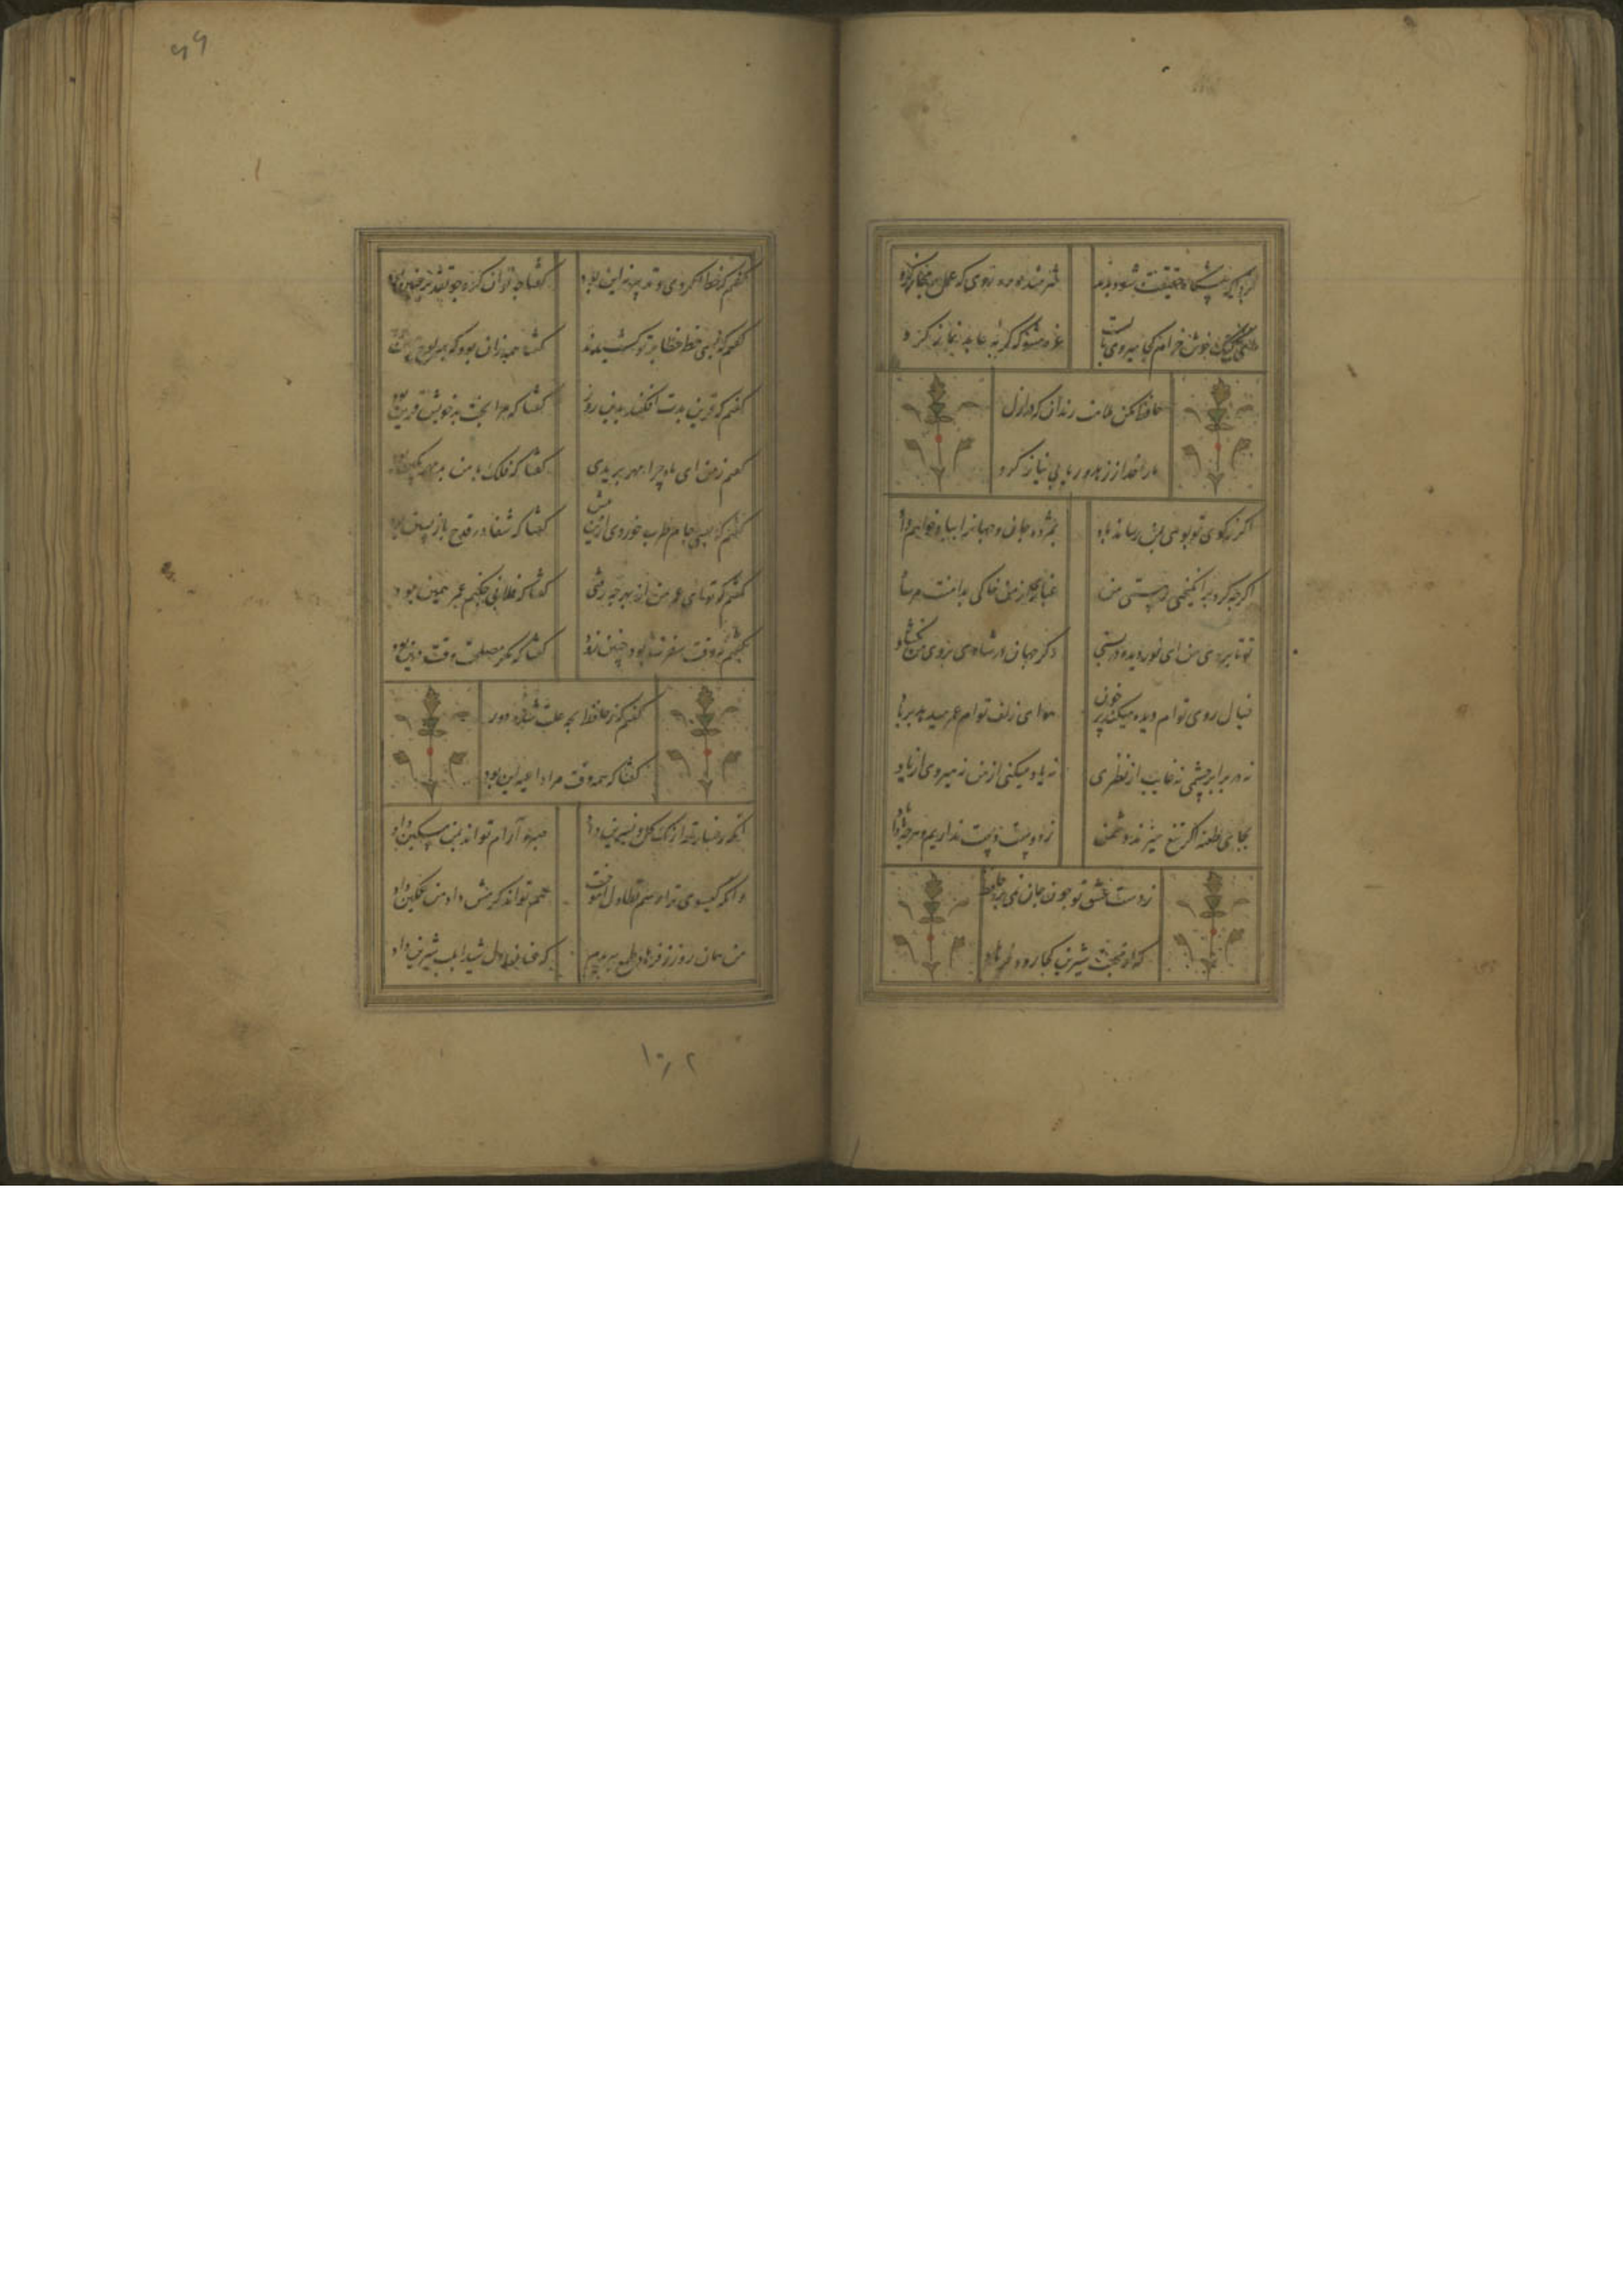 فردا که پیشگاه حقیقت شود پدید شرمنده رهروی که عمل بر مجاز کرد
ای کبک خوش خرام کجا میروی بایست غره مشو که گربه عابد نماز کرد
حافظ مکن ملامت رندان که در ازل
ما را خدا ز زهد ریا بی نیاز کرد
اگر ز کوی تو بوئی بمن رساند باد بمژده جان و جهانرا بباد خواهم داد
اگرچه گرد برانگیختی ز هستی من غباری از من خاکی بدامنت مرساد
تو تا بروی من ای نور دیده در بستی دگر جهان در شادی بروی من نگشاد
خیال روی توام دیده میکند پر خون هوای زلف توام عمر میدهد بر باد
نه در برابر چشمی نه غایب از نظری نه یاد میکنی از من نه میروی از یاد
بجای طعنه اگر تیغ میزند دشمن ز دوست دست نداریم هرچه باداباد
ز دست عشق تو چون جان نمی برد حافظ
که او ز محنت شیرین کجا رود فرهاد
۹۹
گفتم که خطا کردی و تدبیر نه این بود گفتا چه توان کرد چو تقدیر چنین بود
گفتم که بسی خط خطا بر تو کشیدند گفتا همه زان بود که بر لوح جبین بود
گفتم که قرین بدت افکند بدین روز گفتا که مرا بخت بد خویش قرین بود
گفتم ز من ای ماه چرا مهر بریدی گفتا که فلک با من بد مهر بکین بود
گفتم که بسی جام طرب خوردی ازین پیش گفتا که شفا در قدح باز پسین بود
گفتم که تو ای عمر من از بهر چه رفتی گفتا که فلانی چکنم عمر همین بود
گفتم که نه وقت سفرت بود چنین زود گفتا که مگر مصلحت وقت درین بود
گفتم که ز حافظ بچه علت شده دور
گفتا که همه وقت مرا داعیه این بود
آنکه رخسار ترا رنگ گل و نسرین داد صبر و آرام تواند بمن مسکین داد
وآنکه گیسوی ترا رسم تطاول آموخت هم تواند کرمش داد من غمگین داد
من همان روز ز فرهاد طمع ببریدم که عنان دل شیدا بلب شیرین داد
۱۰۲